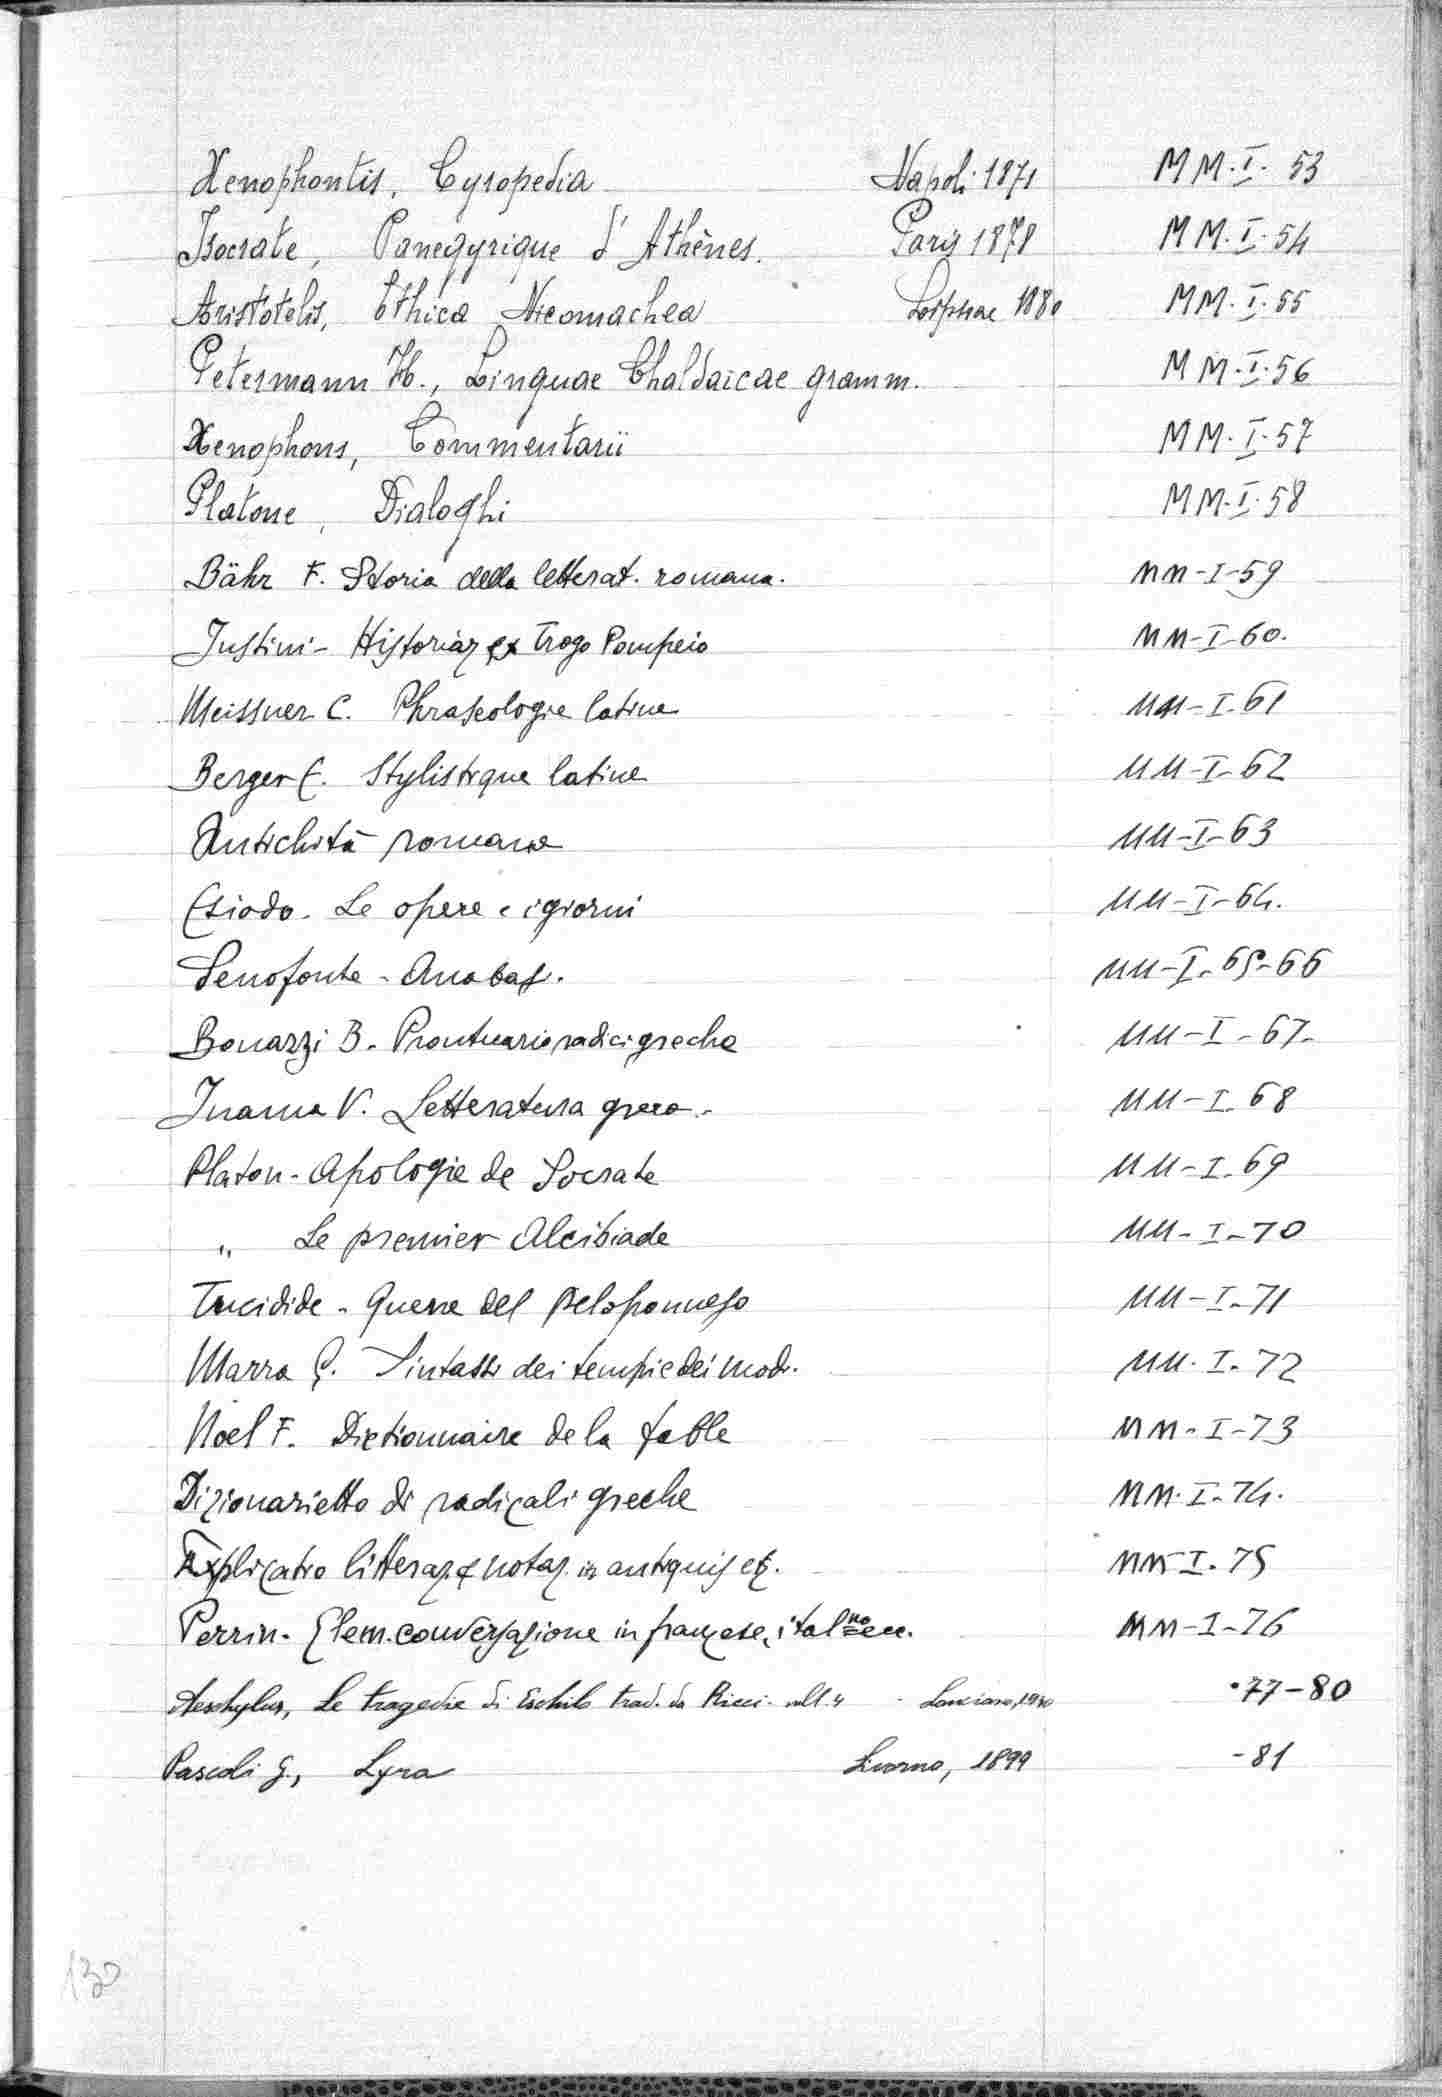 Xenophontis, Cyropedia Napoli 1871 MM. I. 53
Isocrate, Panegyrique d'Athènes. Paris 1878 MM. I. 54
Aristotelis, Ethica Nicomachea Lipsiae 1880 MM. I. 55
Petermann H., Linguae Chaldaicae gramm. MM. I. 56
Xenophons, Commentarii MM. I. 57
Platone, Dialoghi MM. I. 58
Bähr F. Storia della letterat. romana. MM-I-59
Justini - Historiar ex Trogo Pompeio MM-I-60.
Meissner C. Phraseologie latine MM-I-61
Berger E. Stylistique latine MM-I-62
Antichità romane MM-I-63
Esiodo. Le opere e i giorni MM-I-64.
Senofonte - Anabas. MM-I-65-66
Bonazzi B. Prontuario radici greche MM-I-67-
Inama V. Letteratura greca - MM-I-68
Platon - Apologie de Socrate MM-I-69
" Le premier Alcibiade MM-I-70
Tucidide - Guerre del Peloponneso MM-I-71
Marra G. Sintassi dei tempi e dei mod. MM. I-72
Noel F. Dictionnaire de la fable MM-I-73
Dizionarietto di radicali greche MM. I-74.
Explicatio litterar. & notar. in antiquis MM I-75
Perrin - Elem. conversazione in francese, ital MM-I-76
Aeschylus, Le tragedie di Eschilo trad. da Ricci. voll. 4 Lanciano, •77-80
Pascoli G., Lyra Livorno, 1899 -81
130